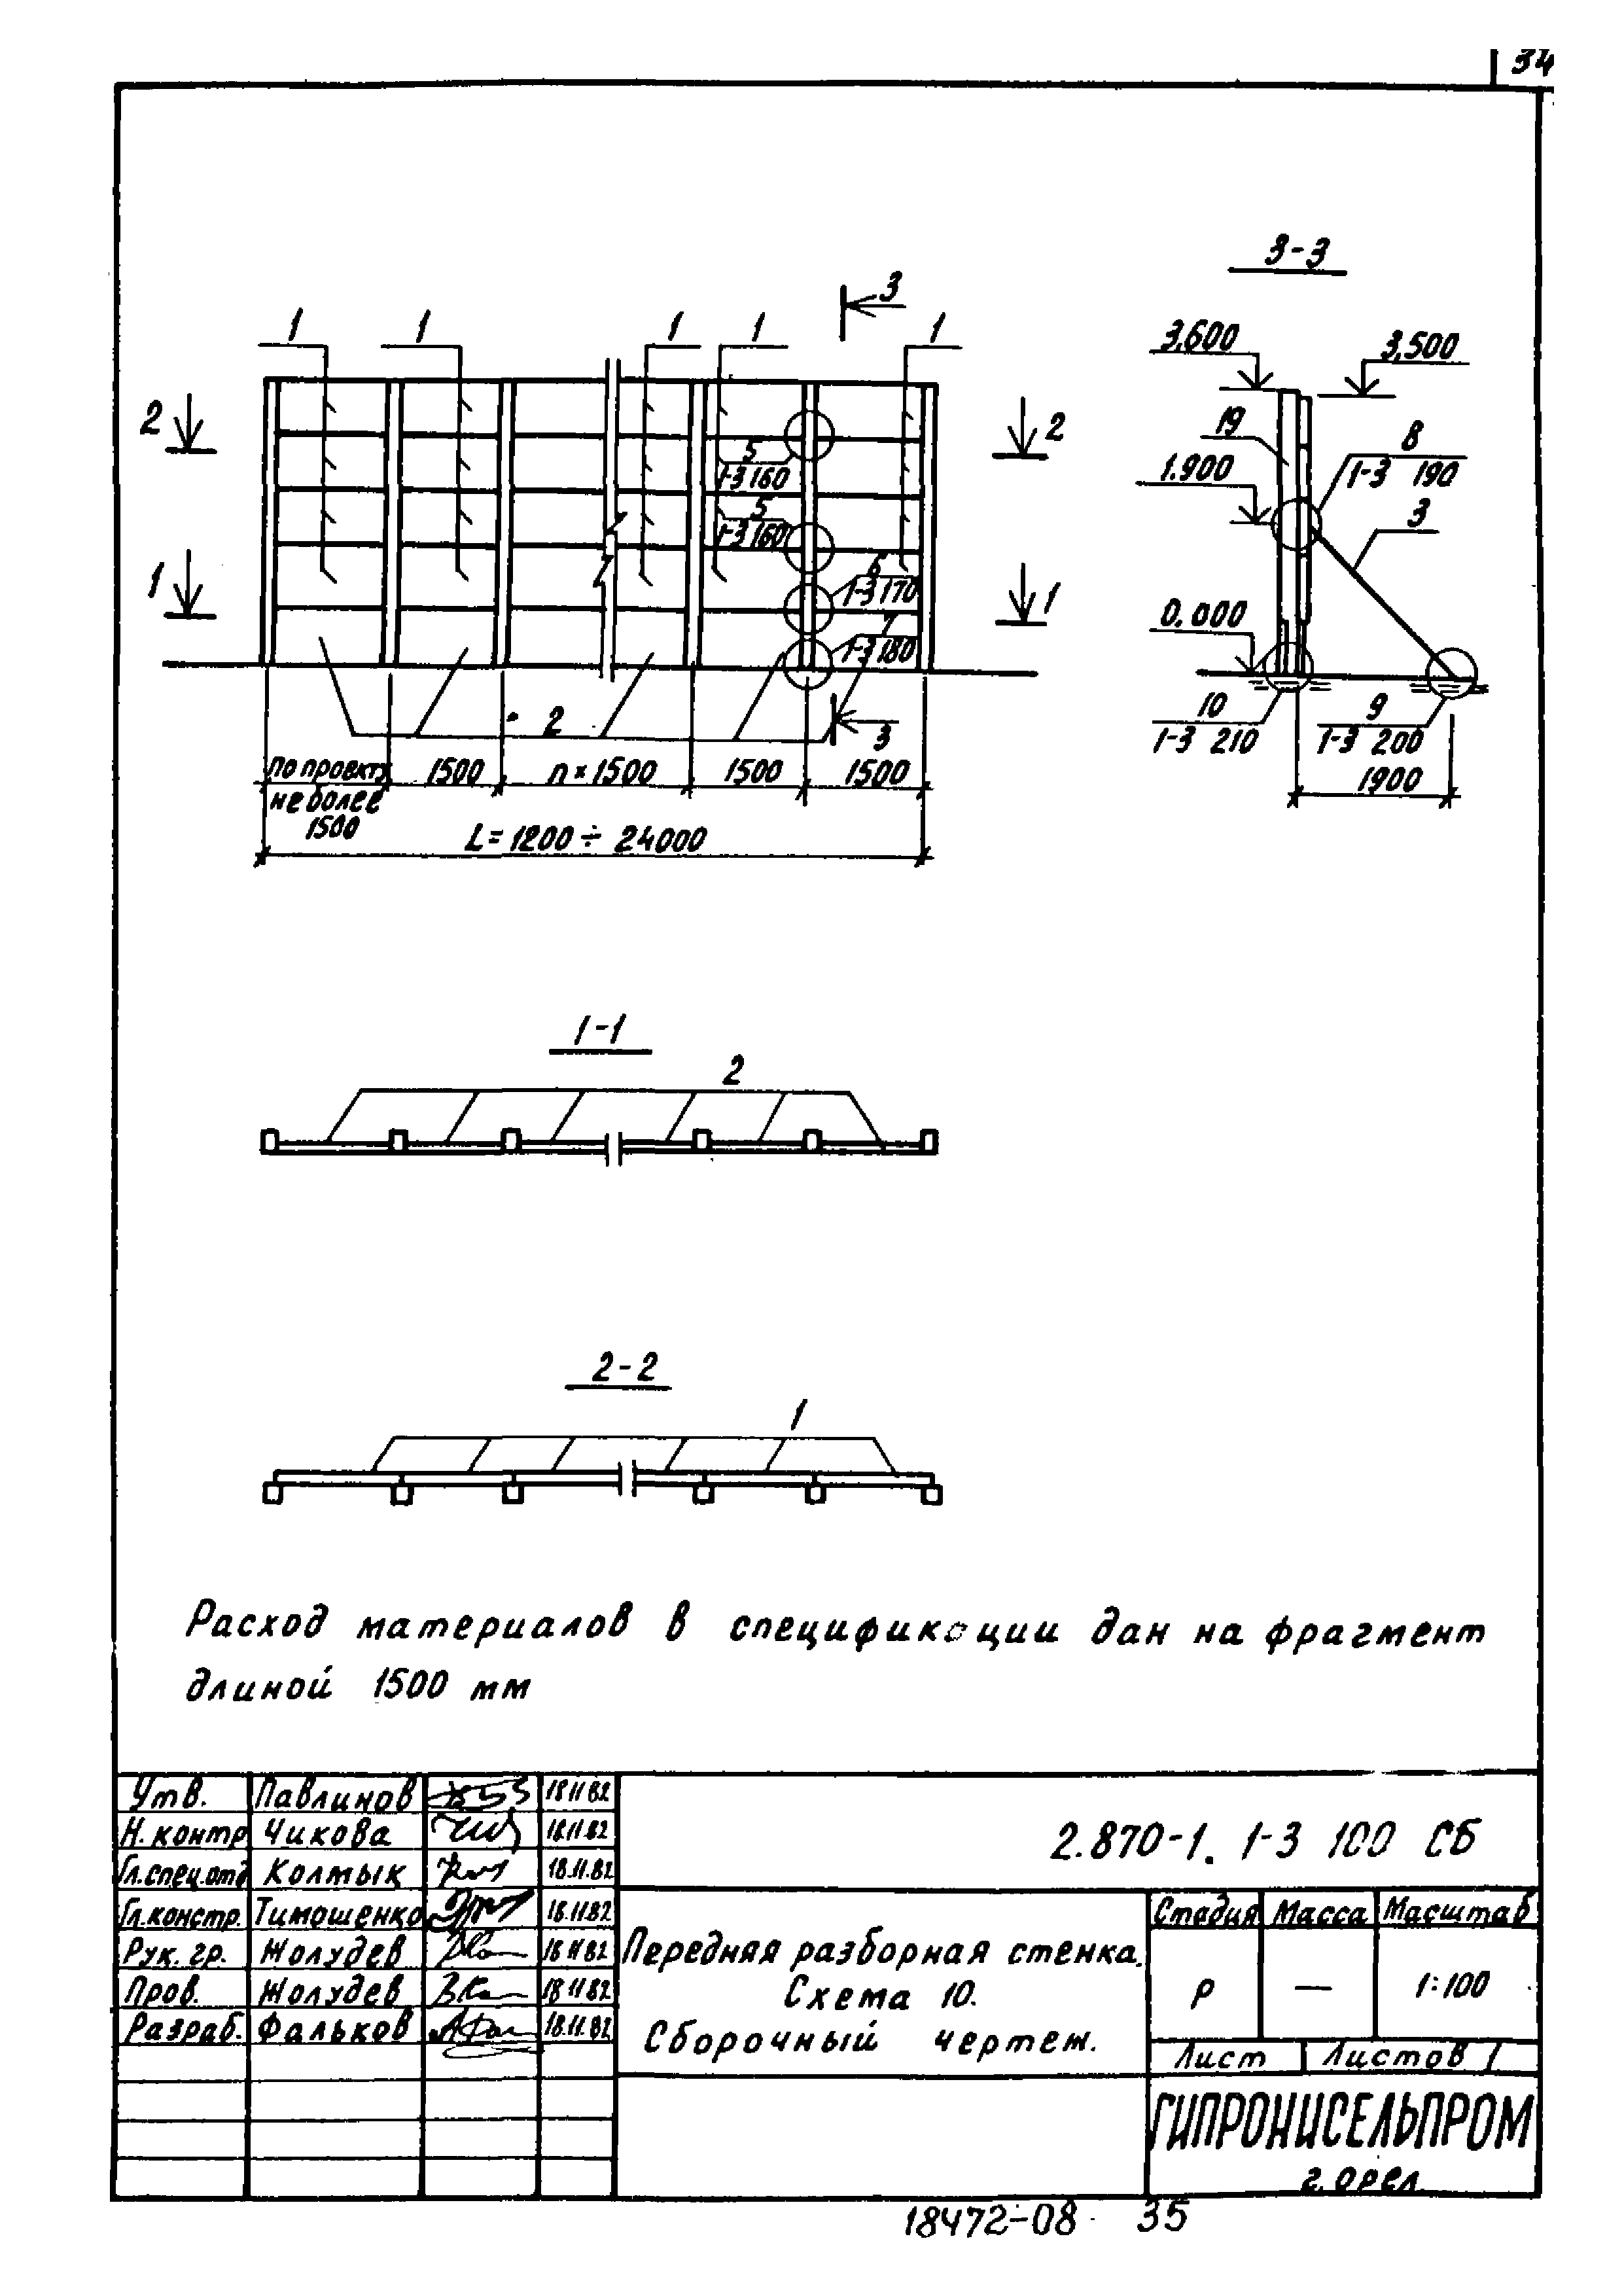 34
3-3
3
1 1 1 1 1
3,600
3,500
2
2
19
8
1-3 190
1.900
5
1-3 160
5
1-3 160
3
6
1-3 170
1
1
0,000
7
1-3 180
2
3
10
1-3 210
9
1-3 200
по проекту
не более
1500
1500
n×1500
1500
1500
1900
L=1200÷24000
1-1
2
2-2
1
Расход материалов в спецификации дан на фрагмент
длиной 1500 мм
Утв. Павлинов 18.11.82
Н. контр Чикова 18.11.82
Гл.спец.отд Колмык 18.11.82
Гл.констр. Тимошенко 18.11.82
Рук. гр. Жолудев 18.11.82
Пров. Жолудев 18.11.82
Разраб. Фальков 18.11.82
2.870-1. 1-3 100 СБ
Передняя разборная стенка.
Схема 10.
Сборочный чертеж.
Стадия Масса Масштаб
Р — 1:100
Лист Листов 1
ГИПРОНИСЕЛЬПРОМ
г. Орел
18472-08 35